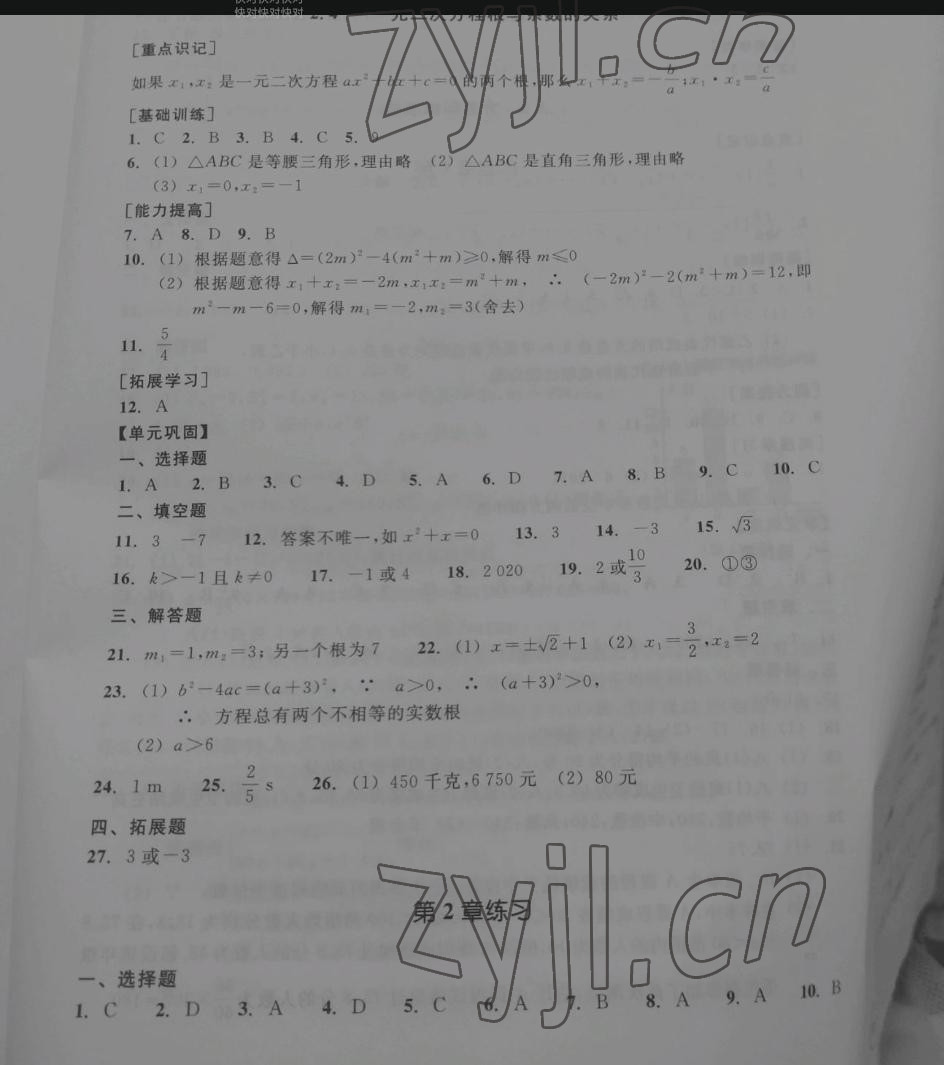 快对快对快对
快对快对快对
2.4 一元二次方程根与系数的关系
[重点识记]
如果 x₁,x₂ 是一元二次方程 ax²+bx+c=0 的两个根,那么 x₁+x₂=-b/a;x₁·x₂=c/a
[基础训练]
1. C 2. B 3. B 4. C 5. 9
6. (1) △ABC 是等腰三角形,理由略 (2) △ABC 是直角三角形,理由略
(3) x₁=0,x₂=-1
[能力提高]
7. A 8. D 9. B
10. (1) 根据题意得 Δ=(2m)²-4(m²+m)≥0,解得 m≤0
(2) 根据题意得 x₁+x₂=-2m,x₁x₂=m²+m, ∴ (-2m)²-2(m²+m)=12,即
m²-m-6=0,解得 m₁=-2,m₂=3(舍去)
11. 5/4
[拓展学习]
12. A
【单元巩固】
一、选择题
1. A 2. B 3. C 4. D 5. A 6. D 7. A 8. B 9. C 10. C
二、填空题
11. 3 -7 12. 答案不唯一,如 x²+x=0 13. 3 14. -3 15. √3
16. k>-1且 k≠0 17. -1或 4 18. 2 020 19. 2 或 10/3 20. ①③
三、解答题
21. m₁=1,m₂=3; 另一个根为 7 22. (1) x=±√2+1 (2) x₁=3/2,x₂=2
23. (1) b²-4ac=(a+3)², ∵ a>0, ∴ (a+3)²>0,
∴ 方程总有两个不相等的实数根
(2) a>6
24. 1 m 25. 2/5 s 26. (1) 450 千克,6 750 元 (2) 80 元
四、拓展题
27. 3 或-3
第 2 章练习
一、选择题
1. C 2. D 3. A 4. D 5. C 6. A 7. B 8. A 9. A 10. B
zyjl.cn
zyjl.cn